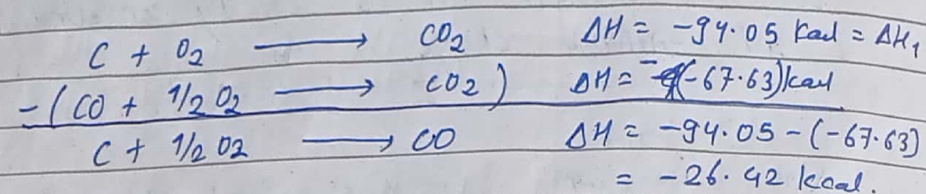 C + O₂ ⟶ CO₂ ΔH = -94.05 Kcal = ΔH₁
-(CO + 1/2 O₂ ⟶ CO₂) ΔH = -(-67.63)kcal
C + 1/2 O₂ ⟶ CO ΔH = -94.05 - (-67.63)
= -26.42 kcal